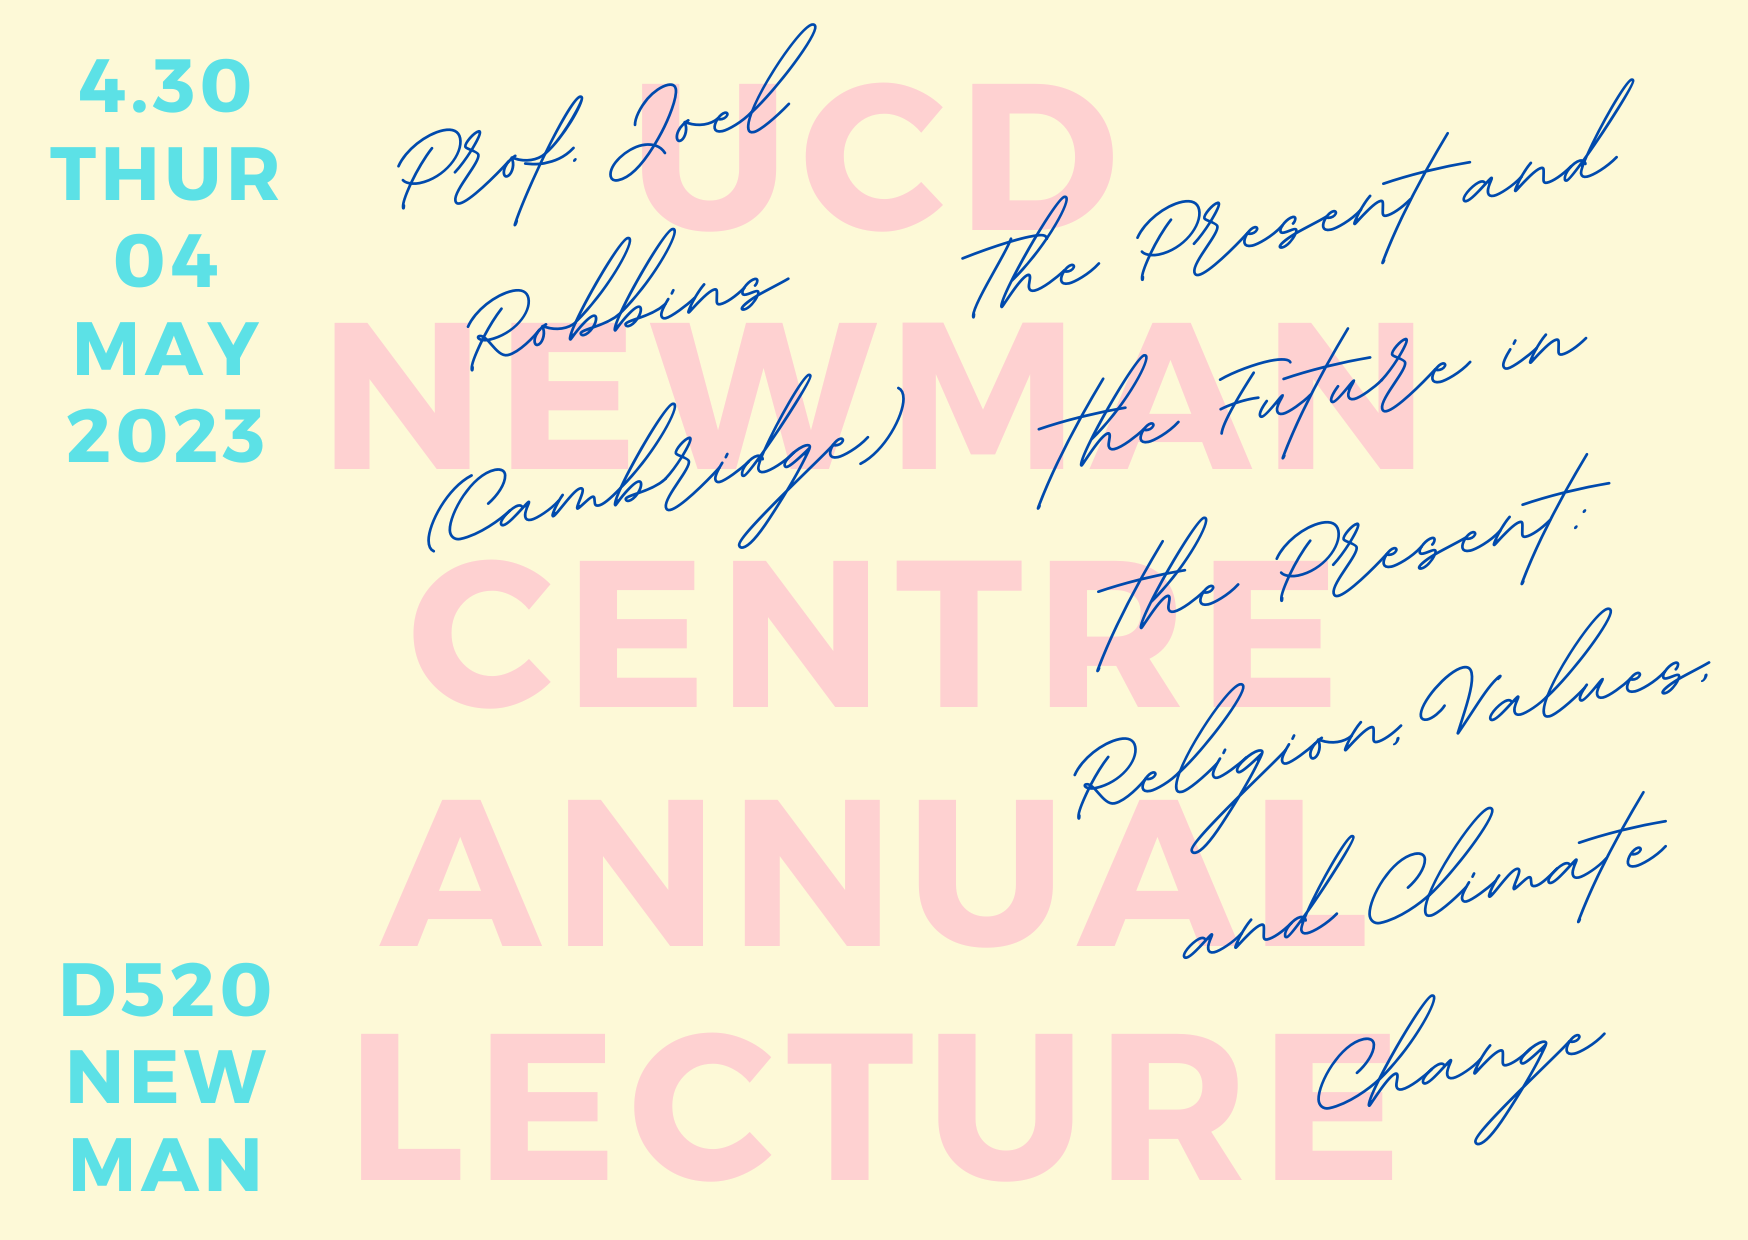 4.30
THUR
04
MAY
2023
D520
NEW
MAN
UCD
NEWMAN
CENTRE
ANNUAL
LECTURE
Prof. Joel
Robbins
(Cambridge)
The Present and
the Future in
the Present:
Religion, Values,
and Climate
Change